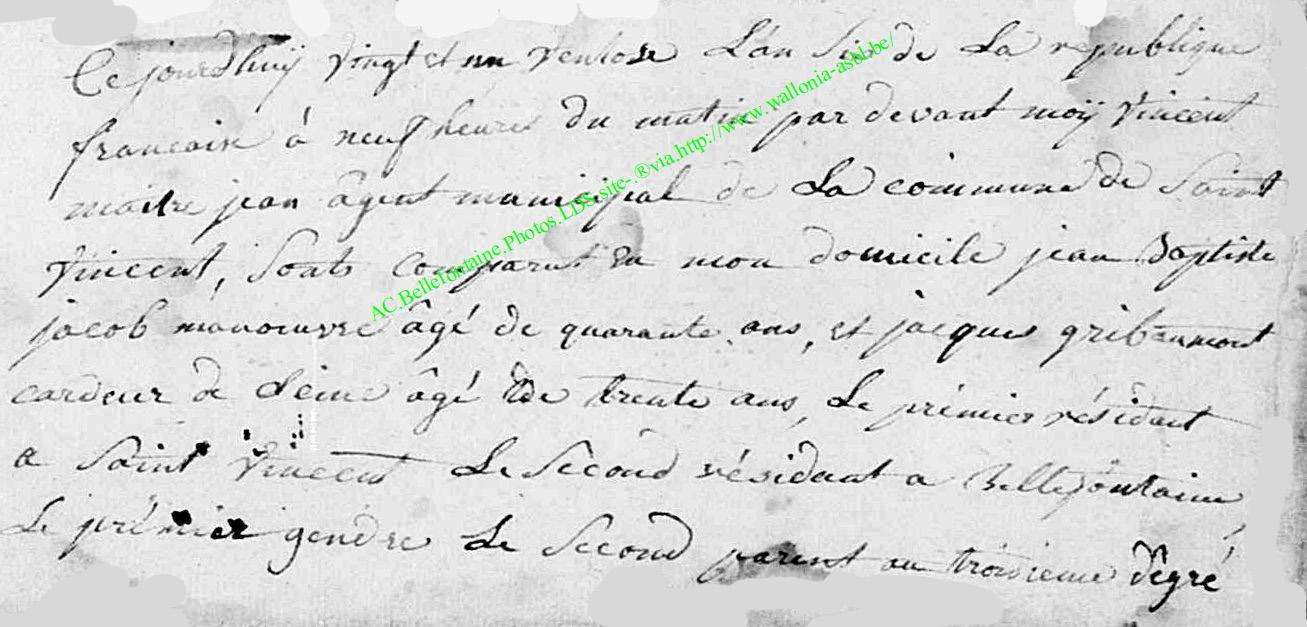 Ce jourdhuÿ vingt et un ventose L'an Six de La republique
francaise à neuf heures du matin par devant moÿ vincent
maitre jean âgent municipal de La commune de Saint
vincent, Sonts comparut en mon domicile jean Baptiste
jacob manoeuvre âgé de quarante ans, et jacques gribaumont
cardeur de Leine âgé de trente ans, Le prémier résidant
a Saint vincent Le Sécond résidant a Bellefontaine
Le prémier gendre Le Second parent au troisieme dêgré
AC.Bellefontaine.Photos.LDS.site-®via.http://www.wallonia-asbl.be/